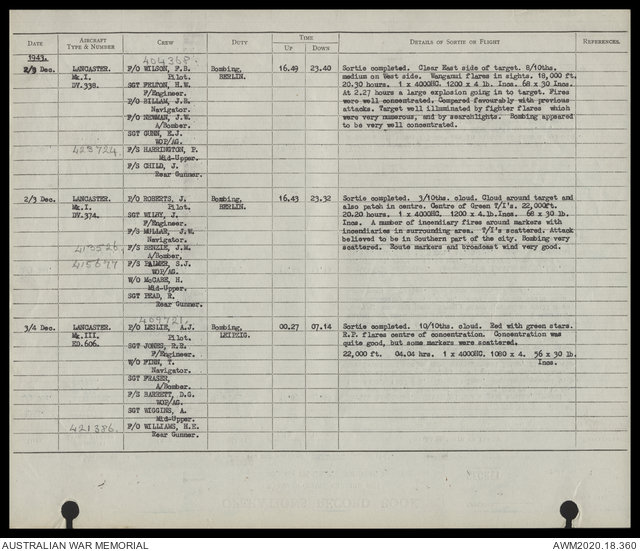 DATE AIRCRAFT TYPE & NUMBER CREW DUTY TIME UP DOWN DETAILS OF SORTIE OR FLIGHT REFERENCES.
1943. 404368.
2/3 Dec. LANCASTER. F/O WILSON, F.B. Bombing, 16.49 23.40 Sortie completed. Clear East side of target. 8/10ths.
Mk.I. Pilot. BERLIN. medium on West side. Wanganui flares in sights. 18,000 ft.
DV.338. SGT FELTON, H.W. 20.30 hours. 1 x 4000HC. 1200 x 4 lb. Incs. 68 x 30 Incs.
F/Engineer. At 2.27 hours a large explosion going in to target. Fires
P/O BILLAM, J.B. were well concentrated. Compared favourably with previous
Navigator. attacks. Target well illuminated by fighter flares which
F/O NEWMAN, J.W. were very numerous, and by searchlights. Bombing appeared
A/Bomber. to be very well concentrated.
SGT GUNN, R.J.
WOP/AG.
423724. F/S HARRINGTON, P.
Mid-Upper.
F/S CHILD, J.
Rear Gunner.
2/3 Dec. LANCASTER. P/O ROBERTS, J. Bombing, 16.43 23.32 Sortie completed. 3/10ths. cloud. Cloud around target and
Mk.I. Pilot. BERLIN. also patch in centre. Centre of Green T/I's. 22,000ft.
DV.374. SGT WILBY, J. 20.20 hours. 1 x 4000HC. 1200 x 4.lb. Incs. 68 x 30 lb.
F/Engineer. Incs. A number of incendiary fires around markers with
F/S MILLAR, J.W. incendiaries in surrounding area. T/I's scattered. Attack
Navigator. believed to be in Southern part of the city. Bombing very
413526. F/S BENZIE, J.M. scattered. Route markers and broadcast wind very good.
A/Bomber.
415677 F/S PALMER, S.J.
WOP/AG.
W/O McCABE, H.
Mid-Upper.
SGT READ, R.
Rear Gunner.
409721.
3/4 Dec. LANCASTER. P/O LESLIE, A.J. Bombing, 00.27 07.14 Sortie completed. 10/10ths. cloud. Red with green stars.
Mk.III. Pilot. LEIPZIG. R.P. flares centre of concentration. Concentration was
ED.606. SGT JONES, R.R. quite good, but some markers were scattered.
F/Engineer. 22,000 ft. 04.04 hrs. 1 x 4000HC. 1080 x 4. 56 x 30 lb.
W/O FINN, T. Incs.
Navigator.
SGT FRASER,
A/Bomber.
F/S BARRETT, D.G.
WOP/AG.
SGT WIGGINS, A.
Mid-Upper.
421386. F/O WILLIAMS, H.E.
Rear Gunner.
AUSTRALIAN WAR MEMORIAL AWM2020.18.360